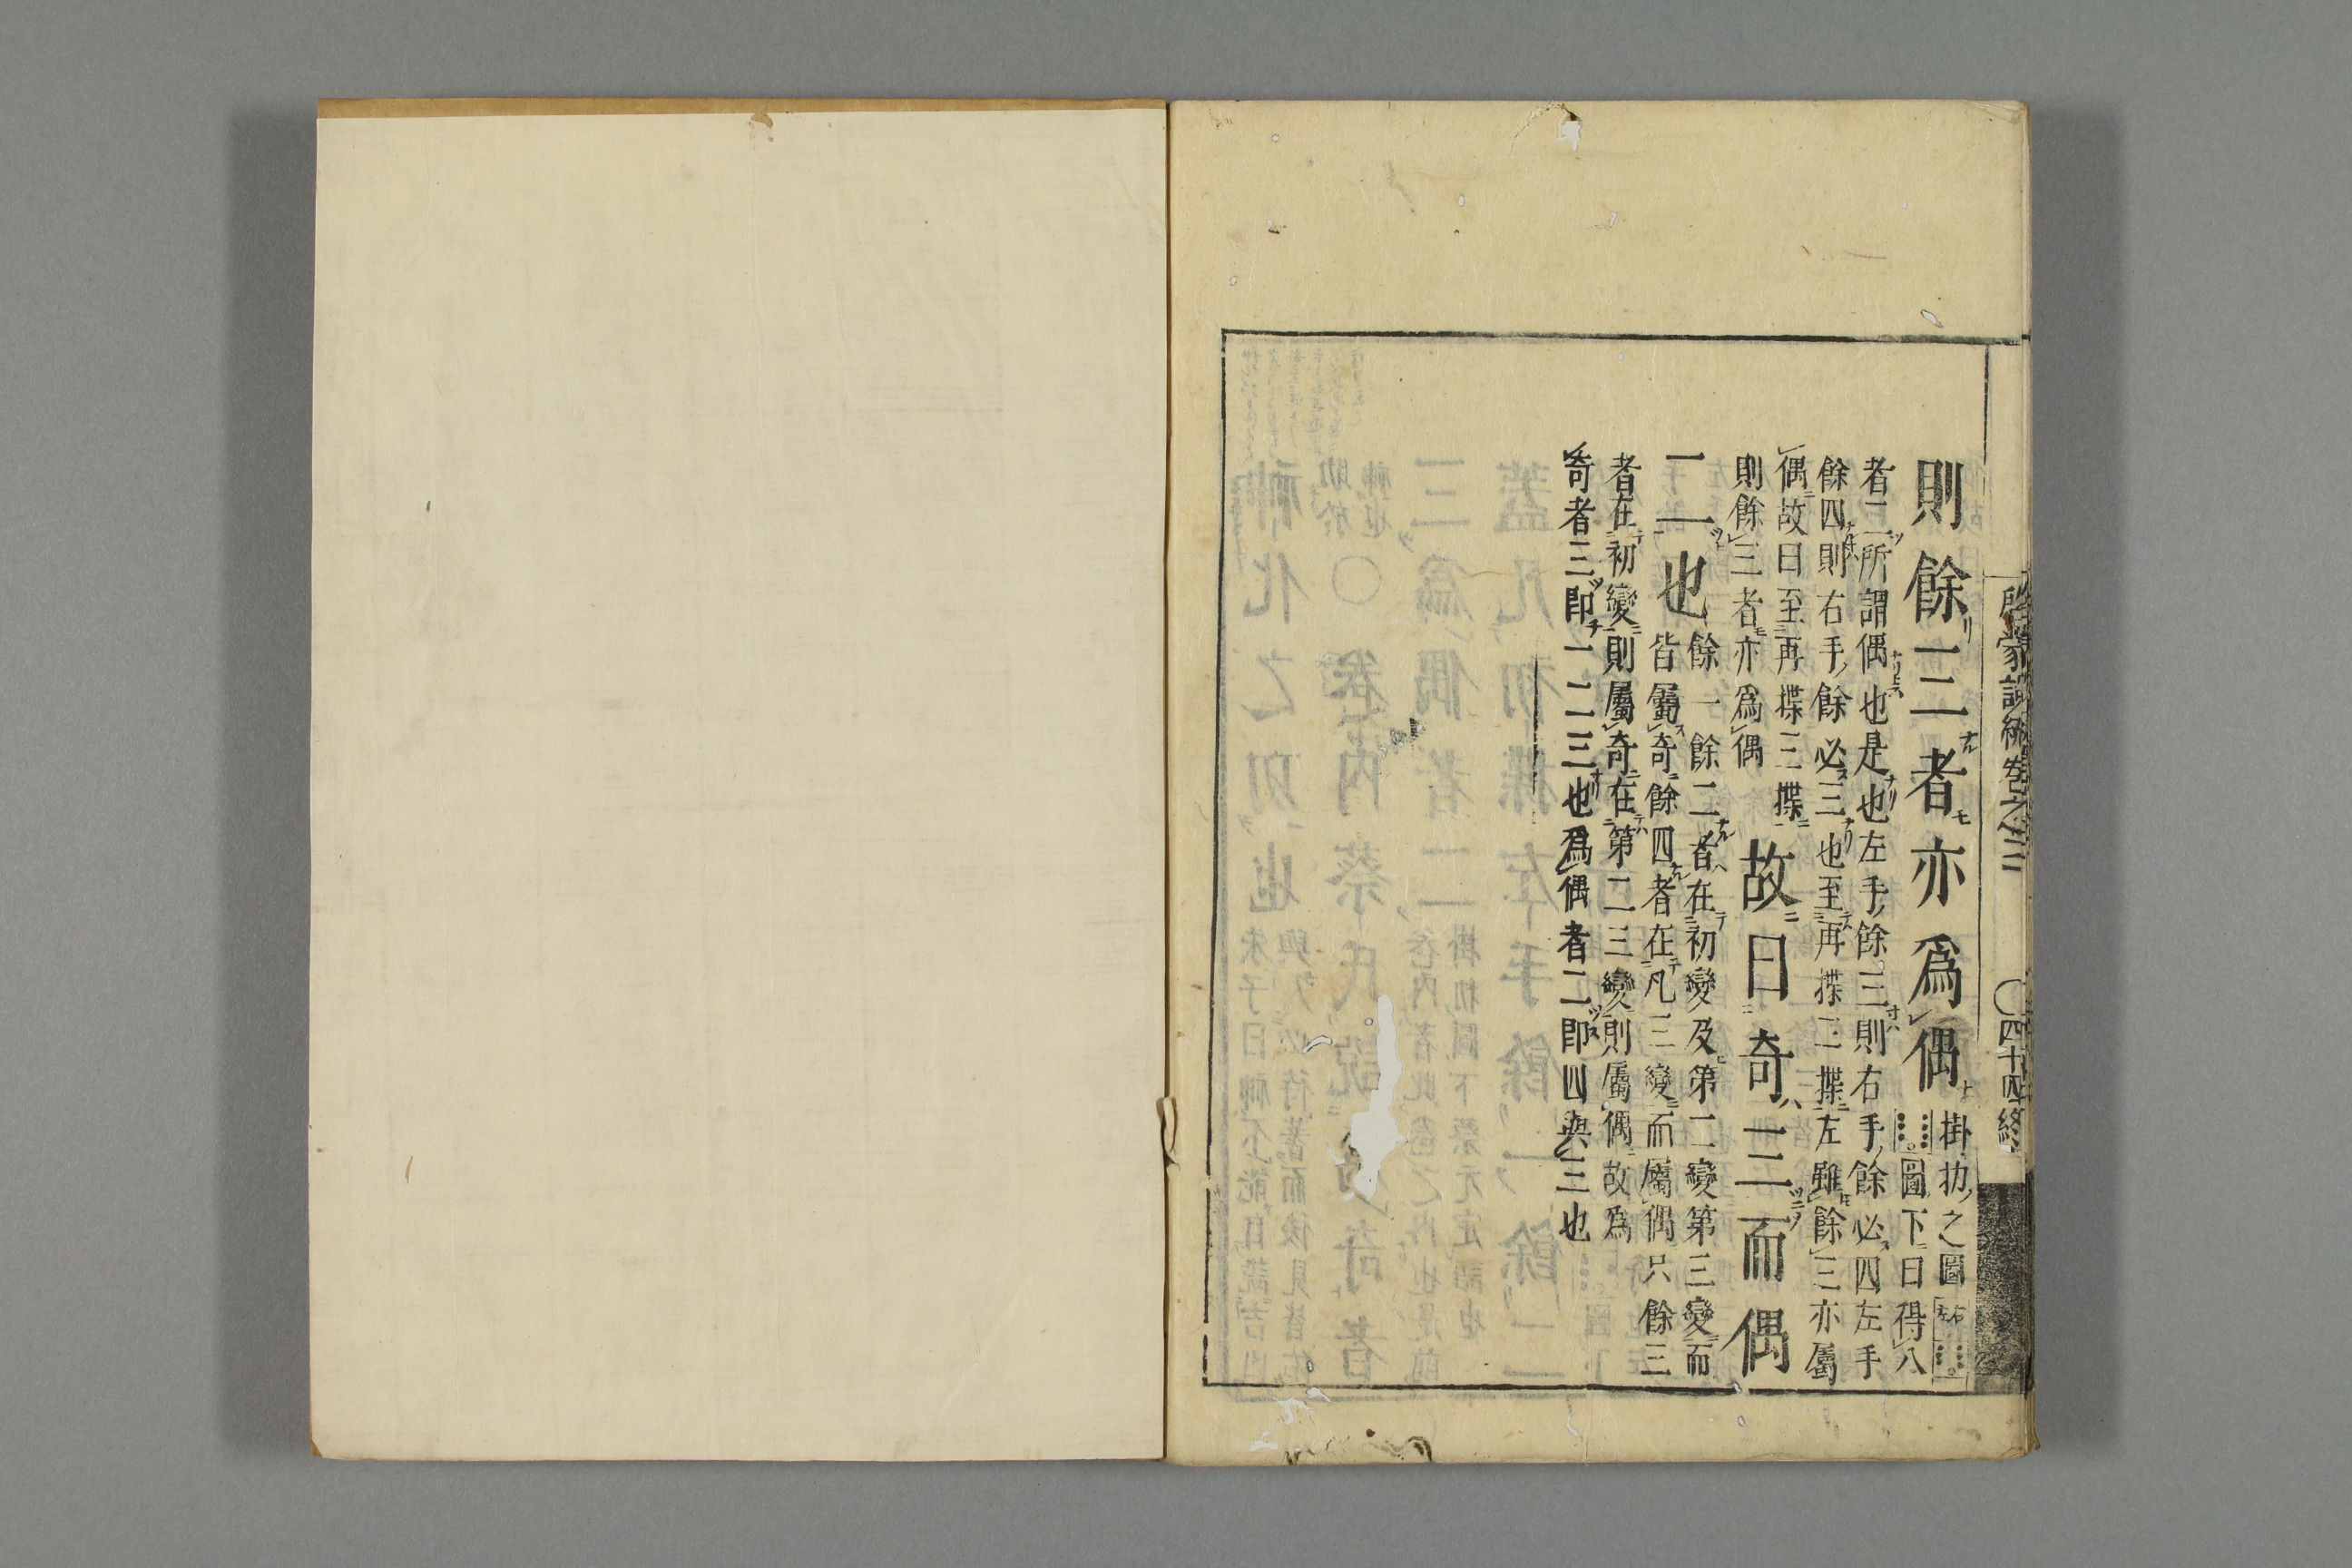 啓蒙 卷之三 〇四十四終
則餘三者亦爲偶
掛扐之圖左右
圖下曰得八
者二所謂偶也是也左手餘三則右手餘必四左手
餘四則右手餘必三也至再揲三揲左雖餘三亦屬
偶故曰至再揲三揲
則餘三者亦爲偶
故曰奇三而偶
二也
餘一餘二者在初變及第二變第三變而
皆屬奇餘四者在凡三變而屬偶只餘三
者在初變則屬奇在第二三變則屬偶故爲
奇者三即一二三也爲偶者二即四與三也